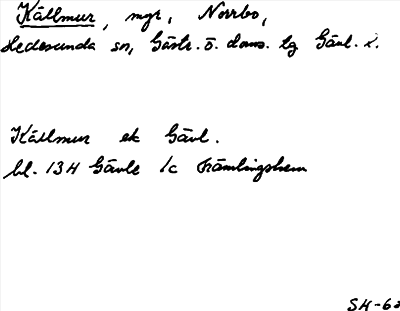 Källmur, mgr, Norrbo,
Hedesunda sn, Gästr. ö. doms. tg Gävl. l.
Källmur ek Gävl.
bl. 13H Gävle 1c Främlingshem
SH-63